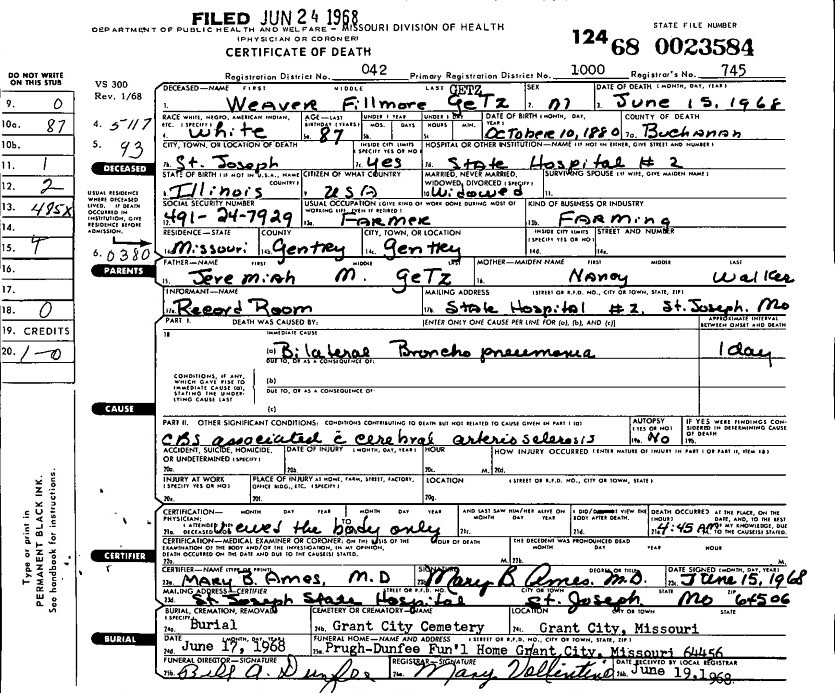 FILED JUN 24 1968
DEPARTMENT OF PUBLIC HEALTH AND WELFARE — MISSOURI DIVISION OF HEALTH
(PHYSICIAN OR CORONER)
CERTIFICATE OF DEATH
STATE FILE NUMBER
124 68 0023584
Registration District No. 042 Primary Registration District No. 1000 Registrar's No. 745
DO NOT WRITE ON THIS STUB
VS 300
Rev. 1/68
9. 0
10a. 87
10b.
11. 1
12. 2
13. 495X
14.
15. 4
16.
17.
18. 0
19. CREDITS
20. 1-0
4. 5117
5. 93
DECEASED
USUAL RESIDENCE WHERE DECEASED LIVED. IF DEATH OCCURRED IN INSTITUTION, GIVE RESIDENCE BEFORE ADMISSION.
6. 0380
PARENTS
CAUSE
CERTIFIER
BURIAL
Type or print in
PERMANENT BLACK INK.
See handbook for instructions.
DECEASED—NAME FIRST MIDDLE LAST GETZ SEX DATE OF DEATH (MONTH, DAY, YEAR)
1. Weaver Fillmore GeTz 2. M 3. June 15, 1968
RACE WHITE, NEGRO, AMERICAN INDIAN, ETC. (SPECIFY) AGE—LAST BIRTHDAY (YEARS) UNDER 1 YEAR MOS. DAYS UNDER 1 DAY HOURS MIN. DATE OF BIRTH (MONTH, DAY, YEAR) COUNTY OF DEATH
4. White 5a. 87 5b. 5c. 6. October 10, 1880 7a. Buchanan
CITY, TOWN, OR LOCATION OF DEATH INSIDE CITY LIMITS (SPECIFY YES OR NO) HOSPITAL OR OTHER INSTITUTION—NAME (IF NOT IN EITHER, GIVE STREET AND NUMBER)
7b. St. Joseph 7c. yes 7d. State Hospital # 2
STATE OF BIRTH (IF NOT IN U.S.A., NAME COUNTRY) CITIZEN OF WHAT COUNTRY MARRIED, NEVER MARRIED, WIDOWED, DIVORCED (SPECIFY) SURVIVING SPOUSE (IF WIFE, GIVE MAIDEN NAME)
8. Illinois 9. USA 10. Widowed 11.
SOCIAL SECURITY NUMBER USUAL OCCUPATION (GIVE KIND OF WORK DONE DURING MOST OF WORKING LIFE, EVEN IF RETIRED) KIND OF BUSINESS OR INDUSTRY
12. 491-24-7929 13a. FARMER 13b. FARMing
RESIDENCE—STATE COUNTY CITY, TOWN, OR LOCATION INSIDE CITY LIMITS (SPECIFY YES OR NO) STREET AND NUMBER
14a. Missouri 14b. Gentry 14c. Gentry 14d. 14e.
FATHER—NAME FIRST MIDDLE LAST MOTHER—MAIDEN NAME FIRST MIDDLE LAST
15. Jeremiah M. GeTz 16. Nancy Walker
INFORMANT—NAME MAILING ADDRESS (STREET OR R.F.D. NO., CITY OR TOWN, STATE, ZIP)
17a. Record Room 17b. State Hospital #2, St. Joseph, Mo
PART I. DEATH WAS CAUSED BY: [ENTER ONLY ONE CAUSE PER LINE FOR (a), (b), AND (c)] APPROXIMATE INTERVAL BETWEEN ONSET AND DEATH
18 IMMEDIATE CAUSE
(a) Bilateral Broncho pneumonia 1 day
DUE TO, OR AS A CONSEQUENCE OF:
CONDITIONS, IF ANY, WHICH GAVE RISE TO IMMEDIATE CAUSE (a), STATING THE UNDERLYING CAUSE LAST
(b)
DUE TO, OR AS A CONSEQUENCE OF:
(c)
PART II. OTHER SIGNIFICANT CONDITIONS: CONDITIONS CONTRIBUTING TO DEATH BUT NOT RELATED TO CAUSE GIVEN IN PART I (a) AUTOPSY (YES OR NO) IF YES WERE FINDINGS CONSIDERED IN DETERMINING CAUSE OF DEATH
CBS associated c̄ cerebral arteriosclerosis 19a. No 19b.
ACCIDENT, SUICIDE, HOMICIDE, OR UNDETERMINED (SPECIFY) DATE OF INJURY (MONTH, DAY, YEAR) HOUR HOW INJURY OCCURRED (ENTER NATURE OF INJURY IN PART I OR PART II, ITEM 18)
20a. 20b. 20c. M. 20d.
INJURY AT WORK (SPECIFY YES OR NO) PLACE OF INJURY AT HOME, FARM, STREET, FACTORY, OFFICE BLDG., ETC. (SPECIFY) LOCATION (STREET OR R.F.D. NO., CITY OR TOWN, STATE)
20e. 20f. 20g.
CERTIFICATION— PHYSICIAN: MONTH DAY YEAR MONTH DAY YEAR AND LAST SAW HIM/HER ALIVE ON MONTH DAY YEAR I DID/ VIEW THE BODY AFTER DEATH. DEATH OCCURRED AT THE PLACE, ON THE DATE, AND, TO THE BEST OF MY KNOWLEDGE, DUE TO THE CAUSE(S) STATED.
21a. viewed the body only 21c. 21d. (HOUR) 4:45 AM
CERTIFICATION—MEDICAL EXAMINER OR CORONER: ON THE BASIS OF THE EXAMINATION OF THE BODY AND/OR THE INVESTIGATION, IN MY OPINION, DEATH OCCURRED ON THE DATE AND DUE TO THE CAUSE(S) STATED. HOUR OF DEATH THE DECEDENT WAS PRONOUNCED DEAD MONTH DAY YEAR HOUR
22a. M. 22b. M.
CERTIFIER—NAME (TYPE OR PRINT) SIGNATURE DEGREE OR TITLE DATE SIGNED (MONTH, DAY, YEAR)
23a. MARY B. Ames, M.D 23b. Mary B Ames. M.D. 23c. June 15, 1968
MAILING ADDRESS—CERTIFIER STREET OR R.F.D. NO. CITY OR TOWN STATE ZIP
23d. St. Joseph State Hospital St. Joseph Mo 64506
BURIAL, CREMATION, REMOVAL (SPECIFY) CEMETERY OR CREMATORY—NAME LOCATION CITY OR TOWN STATE
24a. Burial 24b. Grant City Cemetery 24c. Grant City, Missouri
DATE (MONTH, DAY, YEAR) FUNERAL HOME—NAME AND ADDRESS (STREET OR R.F.D. NO., CITY OR TOWN, STATE, ZIP)
24d. June 17, 1968 25a. Prugh-Dunfee Fun'l Home Grant City, Missouri 64456
FUNERAL DIRECTOR—SIGNATURE REGISTRAR—SIGNATURE DATE RECEIVED BY LOCAL REGISTRAR
25b. Bill A. Dunfee 26a. Mary Vallentine 26b. June 19, 1968